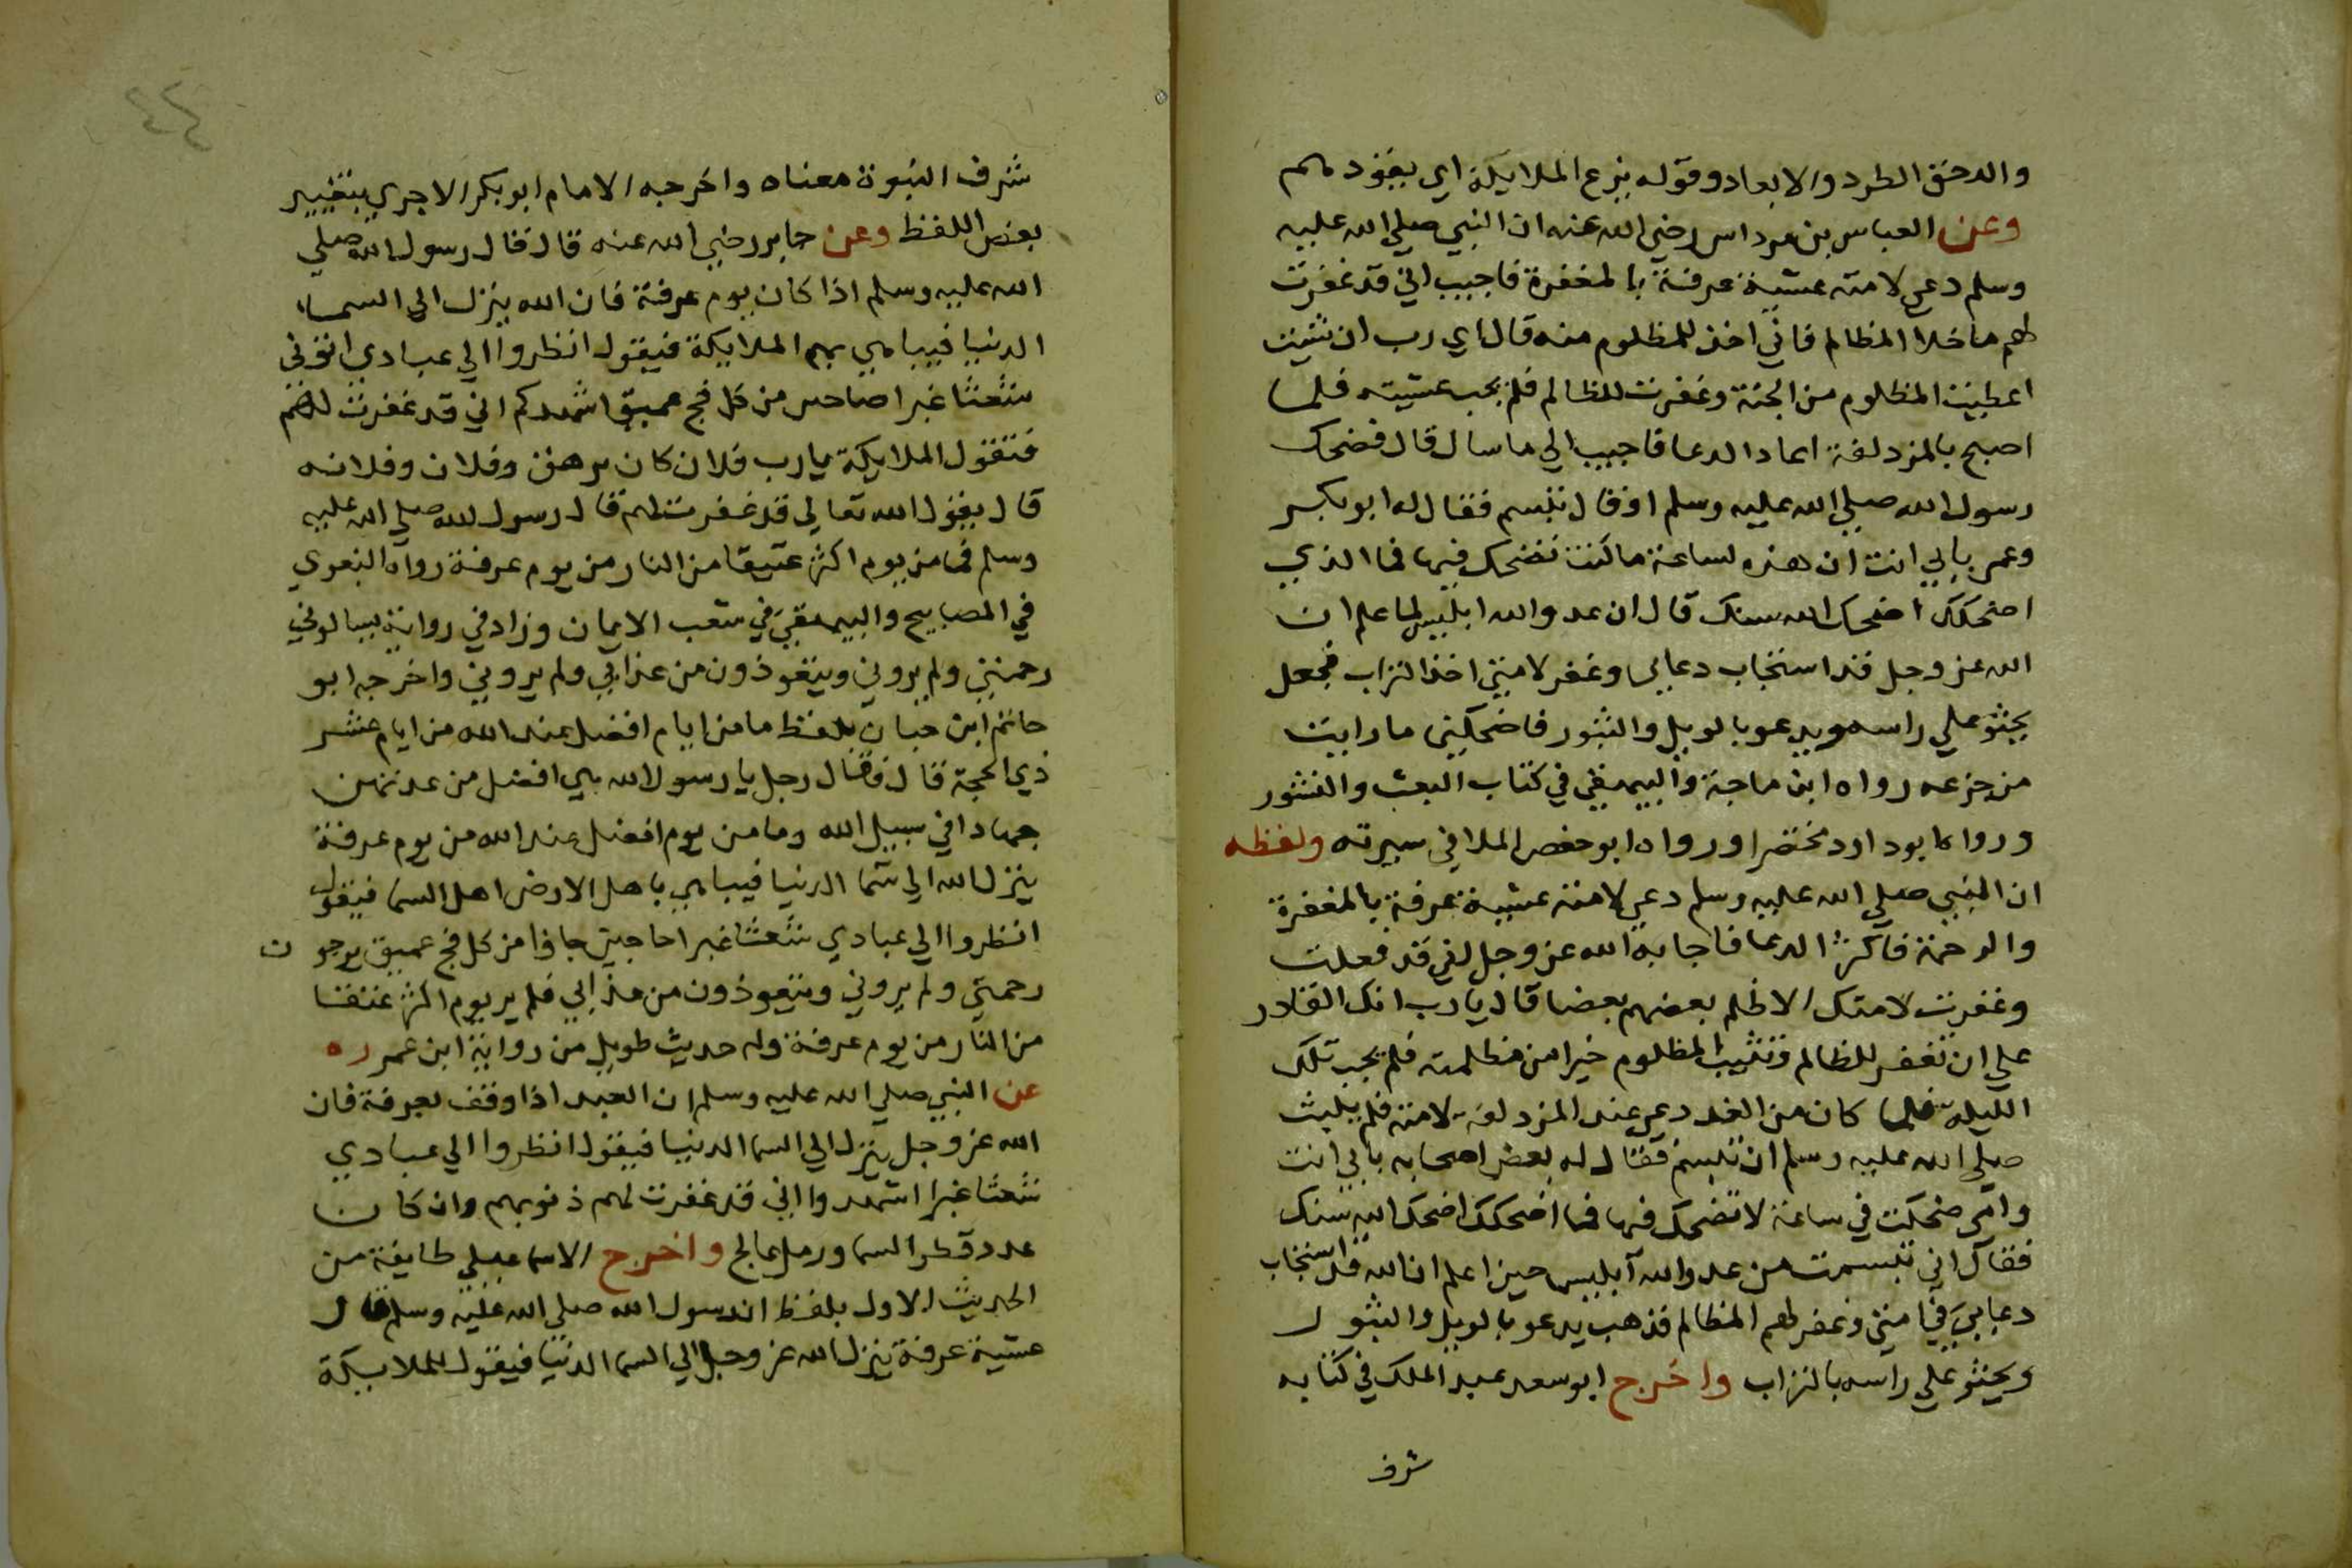 والدحق الطرد والابعاد وقوله يزع الملايكة اي يقودهم
وعن العباس بن مرداس رضي الله عنه ان النبي صلي الله عليه
وسلم دعي لامته عشية عرفة بالمغفرة فاجيب اني قد غفرت
لهم ما خلا المظالم فاني اخذ للمظلوم منه قال اي رب ان شيت
اعطيت المظلوم من الجنة وغفرت للظالم فلم يجب عشيته فلما
اصبح بالمزدلفة اعاد الدعا فاجيب الي ما سال قال فضحك
رسول الله صلي الله عليه وسلم او قال تبسم فقال له ابو بكر
وعمر بابي انت ان هذه لساعة ما كنت تضحك فيها فما الذي
اضحكك اضحك الله سنك قال ان عدو الله ابليس لما علم ان
الله عز وجل قد استجاب دعاي وغفر لامتي اخذ التراب فجعل
يحثو علي راسه ويدعو بالويل والثبور فاضحكني ما رايت
من جزعه رواه ابن ماجة والبيهقي في كتاب البعث والنشور
ورواه ابو داود مختصرا ورواه ابو حفص الملا في سيرته ولفظه
ان النبي صلي الله عليه وسلم دعي لامته عشية عرفة بالمغفرة
والرحمة فاكثر الدعا فاجابه الله عز وجل اني قد فعلت
وغفرت لامتك الا ظلم بعضهم بعضا قال يارب انك القادر
علي ان تغفر للظالم وتثيب المظلوم خيرا من مظلمته فلم يجب تلك
الليلة فلما كان من الغد دعي عند المزدلفة لامته فلم يلبث
صلي الله عليه وسلم ان تبسم فقال له بعض اصحابه بابي انت
وامي ضحكت في ساعة لا تضحك فيها فما اضحكك اضحك الله سنك
فقال اني تبسمت من عدو الله ابليس حين اعلم ان الله قد استجاب
دعايي في امتي وغفر لهم المظالم فذهب يدعو بالويل والثبور
ويحثو علي راسه بالتراب واخرج ابو سعد عبد الملك في كتابه
شرف
٤٣
شرف النبوة معناه واخرجه الامام ابو بكر الاجري بتغيير
بعض اللفظ وعن جابر رضي الله عنه قال قال رسول الله صلي
الله عليه وسلم اذا كان يوم عرفة فان الله ينزل الي السماء
الدنيا فيباهي بهم الملايكة فيقول انظروا الي عبادي اتوني
شعثا غبرا ضاحين من كل فج عميق اشهدكم اني قد غفرت لهم
فتقول الملايكة يارب فلان كان يرهق وفلان وفلانه
قال يقول الله تعالي قد غفرت لهم قال رسول الله صلي الله عليه
وسلم فما من يوم اكثر عتيقا من النار من يوم عرفة رواه البغوي
في المصابيح والبيهقي في شعب الايمان وزاد في رواية يسالوني
رحمتي ولم يروني ويتعوذون من عذابي ولم يروني واخرجه ابو
حاتم ابن حبان بلفظ ما من ايام افضل عند الله من ايام عشر
ذي الحجة قال فقال رجل يا رسول الله هي افضل من عدتهن
جهادا في سبيل الله وما من يوم افضل عند الله من يوم عرفة
ينزل الله الي سما الدنيا فيباهي باهل الارض اهل السما فيقول
انظروا الي عبادي شعثا غبرا حاجين جاؤا من كل فج عميق يرجون
رحمتي ولم يروني ويتعوذون من عذابي فلم ير يوم اكثر عتقا
من النار من يوم عرفة وله حديث طويل من رواية ابن عمر ره
عن النبي صلي الله عليه وسلم ان العبد اذا وقف بعرفة فان
الله عز وجل ينزل الي السما الدنيا فيقول انظروا الي عبادي
شعثا غبرا اشهدوا اني قد غفرت لهم ذنوبهم وان كان
عدد قطر السما ورمل عالج واخرج الاسماعيلي طايفة من
الحديث الاول بلفظ ان رسول الله صلي الله عليه وسلم قال
عشية عرفة ينزل الله عز وجل الي السما الدنيا فيقول للملايكة